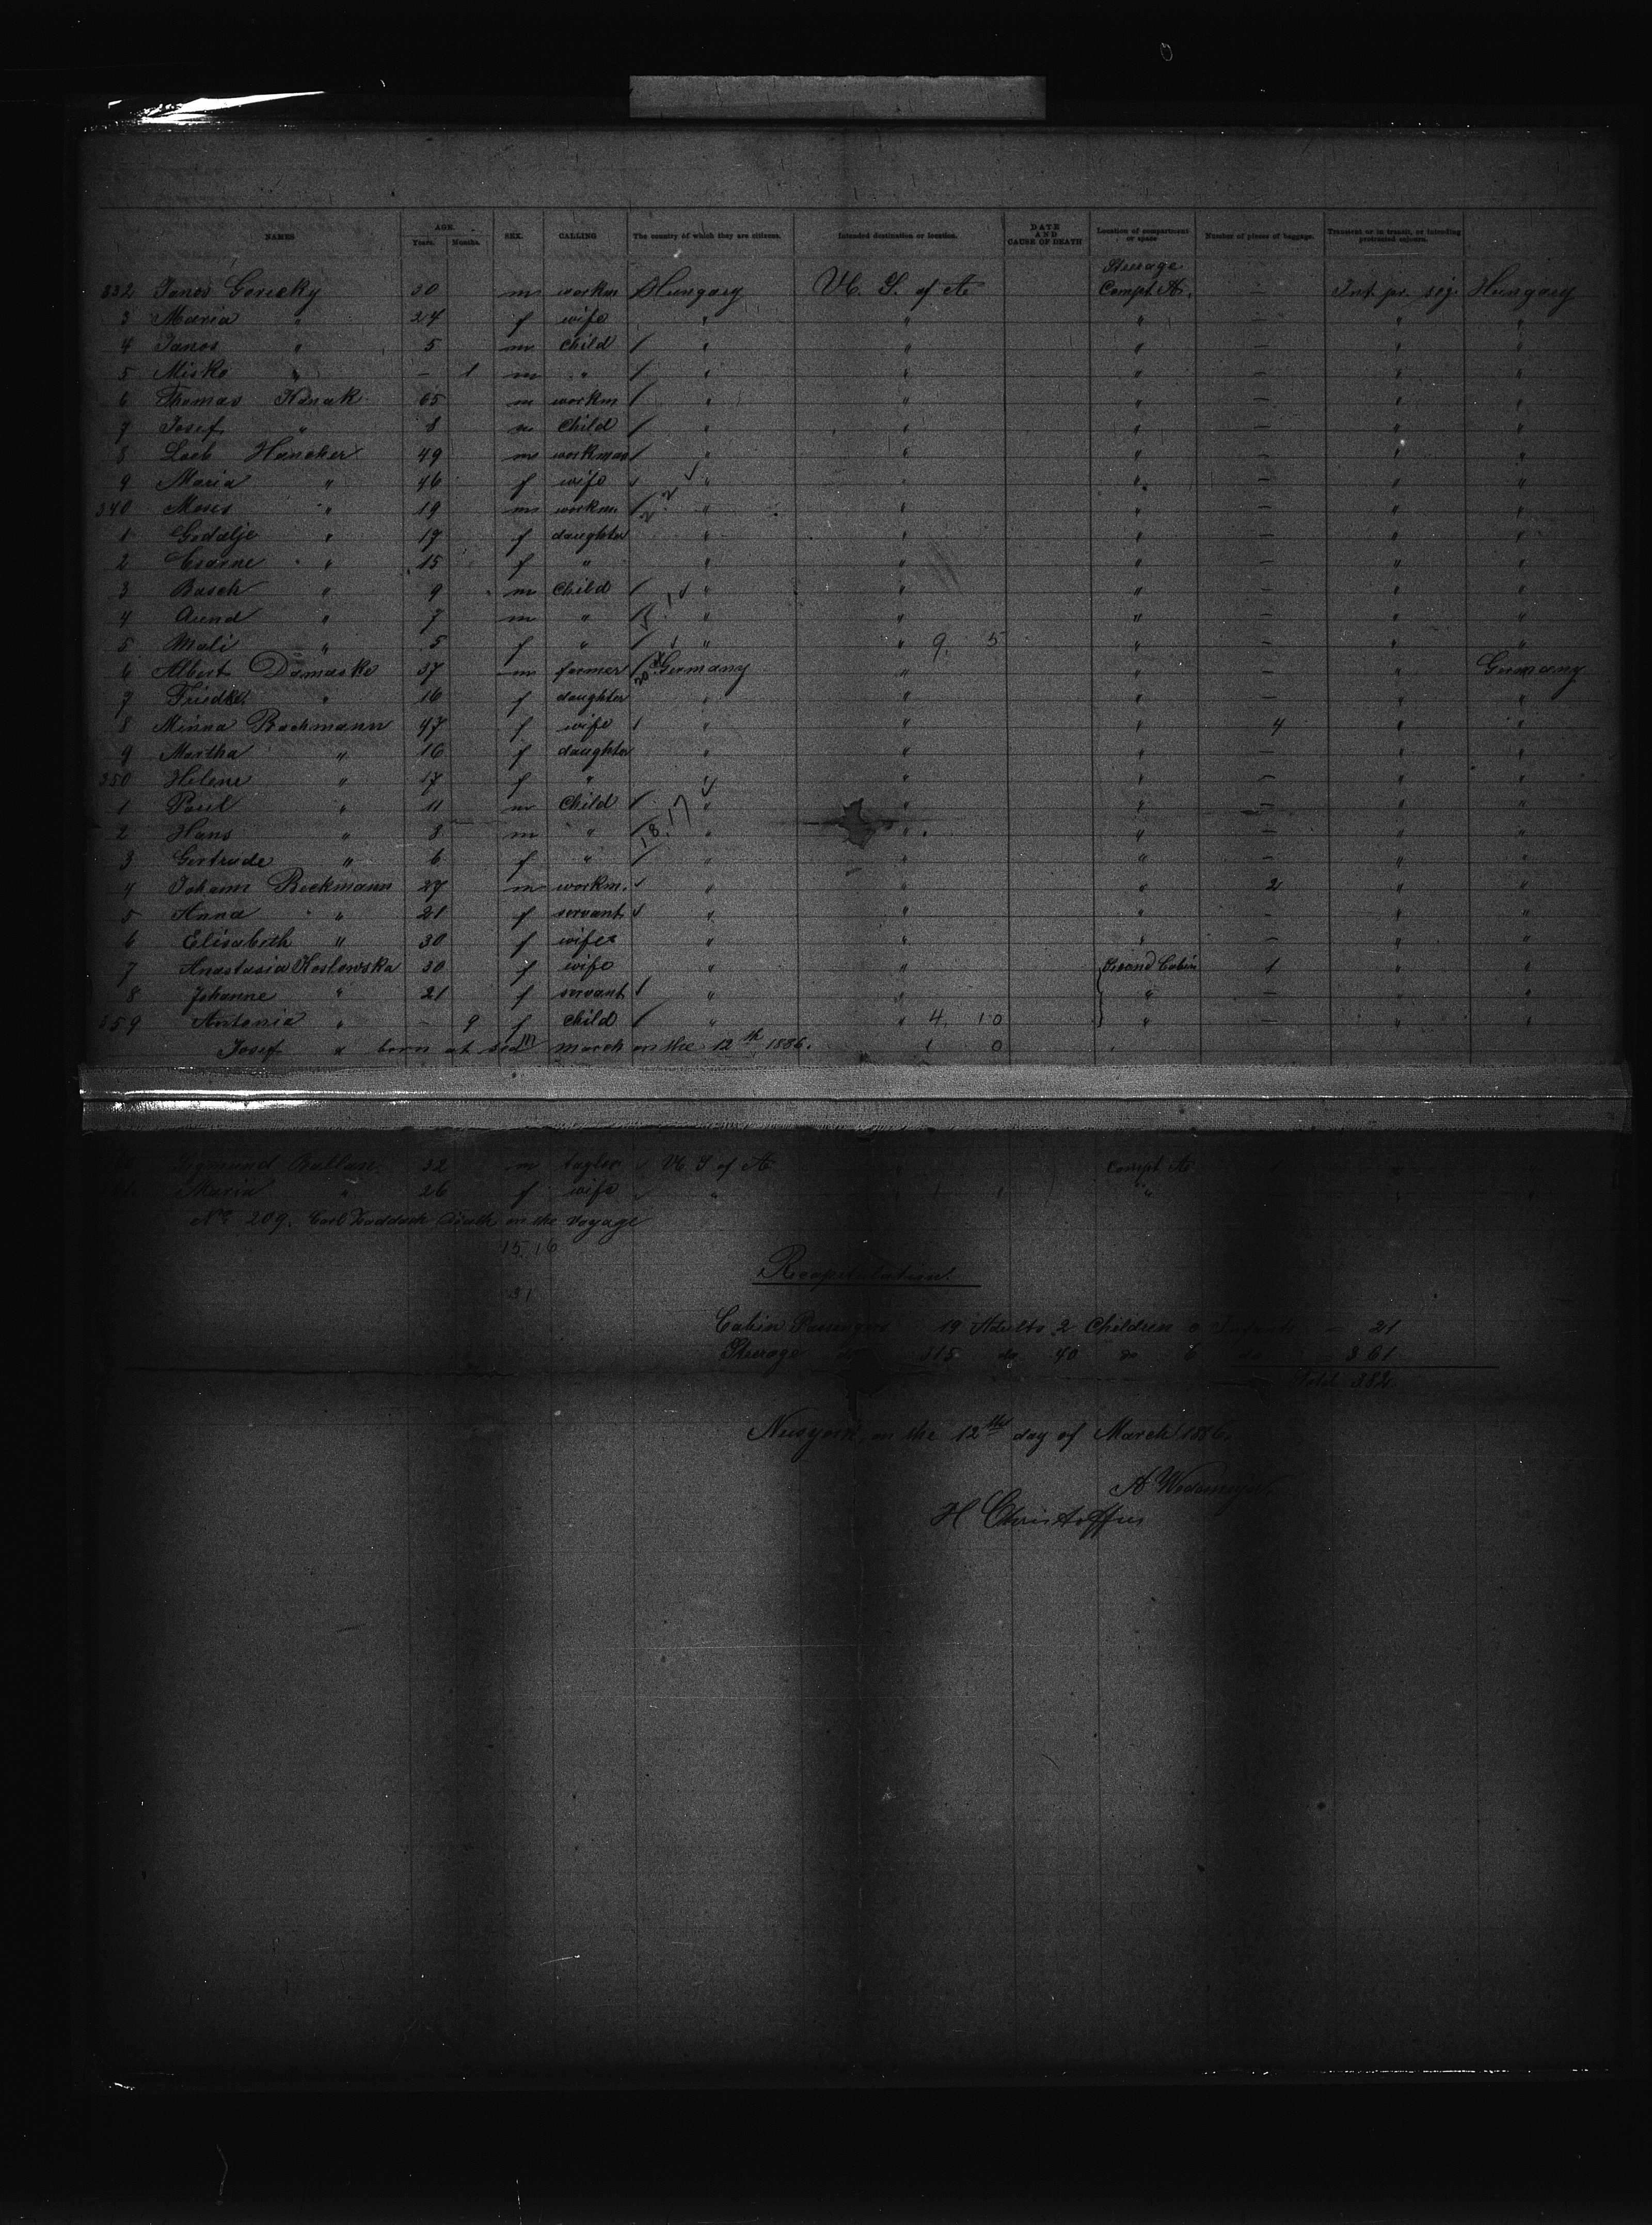 NAMES AGE. Years. Months. SEX. CALLING The country of which they are citizens. Intended destination or location. DATE AND CAUSE OF DEATH Location of compartment or space Number of pieces of baggage. Transient or in transit, or intending protracted sojourn.
Steerage
332 Janos Goricky 30 m workm Hungary U. S. of A Compt A. — Int. pr. soj. Hungary
3 Maria " 24 f wife " " " — " "
4 Janos " 5 m child " " " — " "
5 Misko " — 1 m " " " " — " "
6 Thomas Kanak 65 m workm " " " — " "
7 Josef " 8 m child " " " — " "
8 Loeb Hancker 49 m workman " " " — " "
9 Maria " 46 f wife " " " — " "
340 Moses " 19 m workm. " " " — " "
1 Godalje " 17 f daughter " " " — " "
2 " 15 f " " " " — " "
3 Basch " 9 m child " " " — " "
4 " 7 m " " " " — " "
5 Mali " 5 f " " " 9. 5 " — " "
6 Albert Damaske 37 m farmer Germany " " — " Germany
7 " 16 f daughter " " " — " "
8 Minna Bachmann 47 f wife " " " 4 " "
9 Martha " 16 f daughter " " " — " "
350 Helene " 17 f " " " " — " "
1 Paul " 11 m child " " " — " "
2 Hans " 8 m " " " " — " "
3 Gertrude " 6 f " " " " — " "
4 Johann Beckmann 27 m workm. " " " 2 " "
5 Anna " 21 f servant " " " — " "
6 Elisabeth " 30 f wife " " " — " "
7 Anastasia Koslowska 30 f wife " " Second Cabin 1 " "
8 Johanne " 21 f servant " " " — " "
359 Antonia " — 9 f child " " 4 10 " — " "
Josef " born at sea march on the 12th 1886. 1 0
Sigmund Ballan 32 m U. S of A Compt A
Maria " 26 f wife " "
No 209. Carl death on the voyage
15 16
31
Recapitulation.
Cabin Passengers 19 Adults 2 Children 0 Infants — 21
Steerage 315 do 40 do 6 do 361
Total 382
Newyork, on the 12th day of March 1886.
H Christoffers